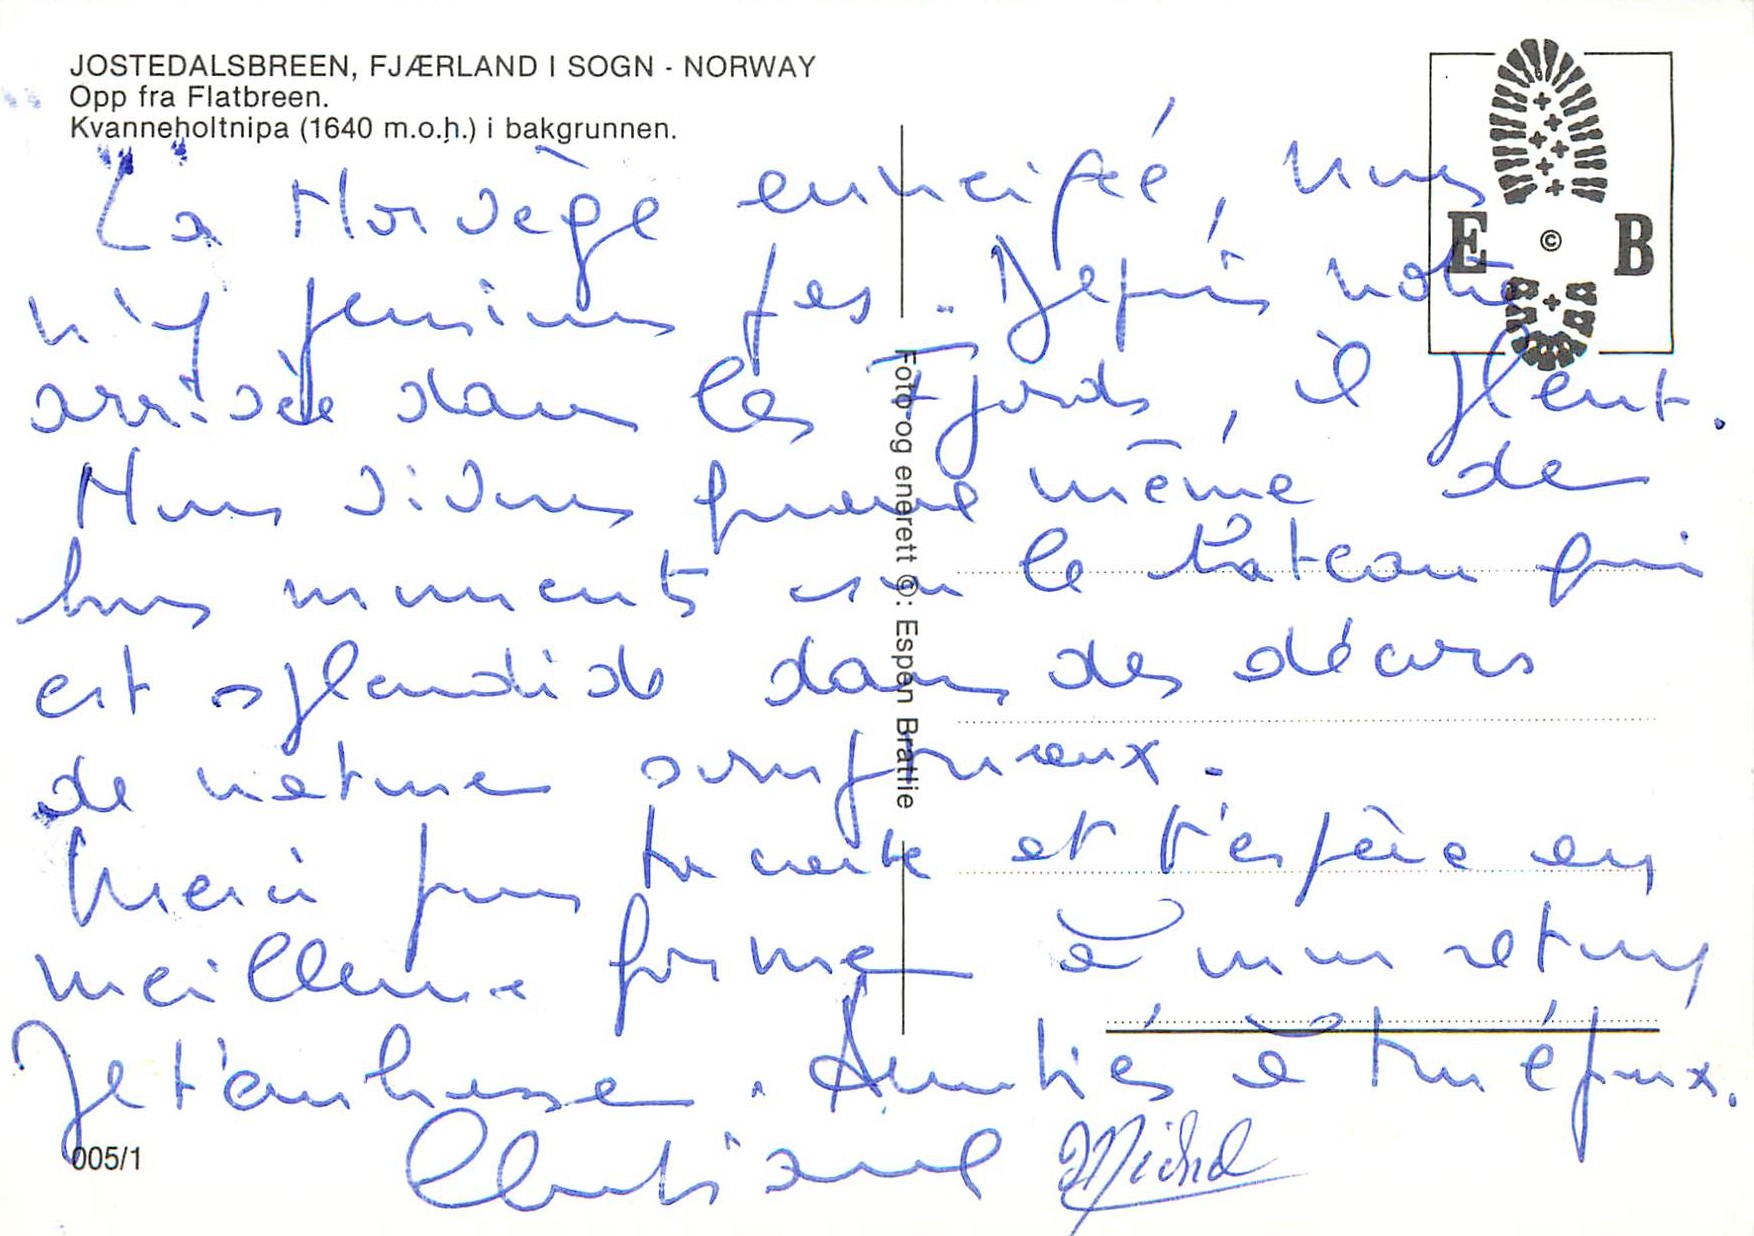 JOSTEDALSBREEN, FJÆRLAND I SOGN - NORWAY
Opp fra Flatbreen.
Kvanneholtnipa (1640 m.o.h.) i bakgrunnen.
E © B
La Norvège, nous
n'y pensions pas. Depuis notre
arrivée dans les Fjords, il pleut.
Nous vivons quand même de
bons moments sur le bateau qui
est splendide dans des décors
de nature somptueux.
Merci pour ta carte et t'espère en
meilleure forme à mon retour
Je t'embrasse. Amitiés à ton époux.
Christiane Michel
005/1
Foto og enerett ©: Espen Bratlie